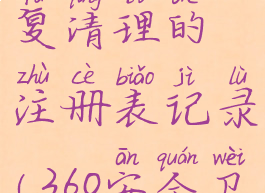 复清理的
zhù cè biǎo jì lù
注册表记录
ān quán wèi
(360安全卫